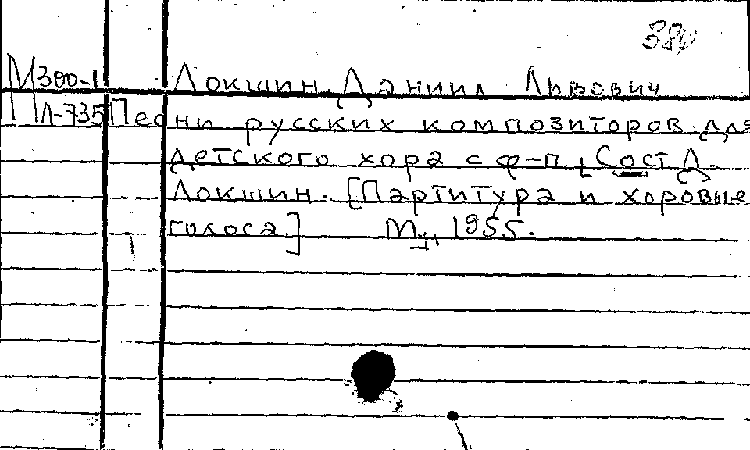 380
М300-1 Локшин Даниил Львович
Пл-735 Песни русских композиторов для
детского хора с ф-п, Сост Д.
Локшин. [Партитура и хоровые
голоса] М., 1955.